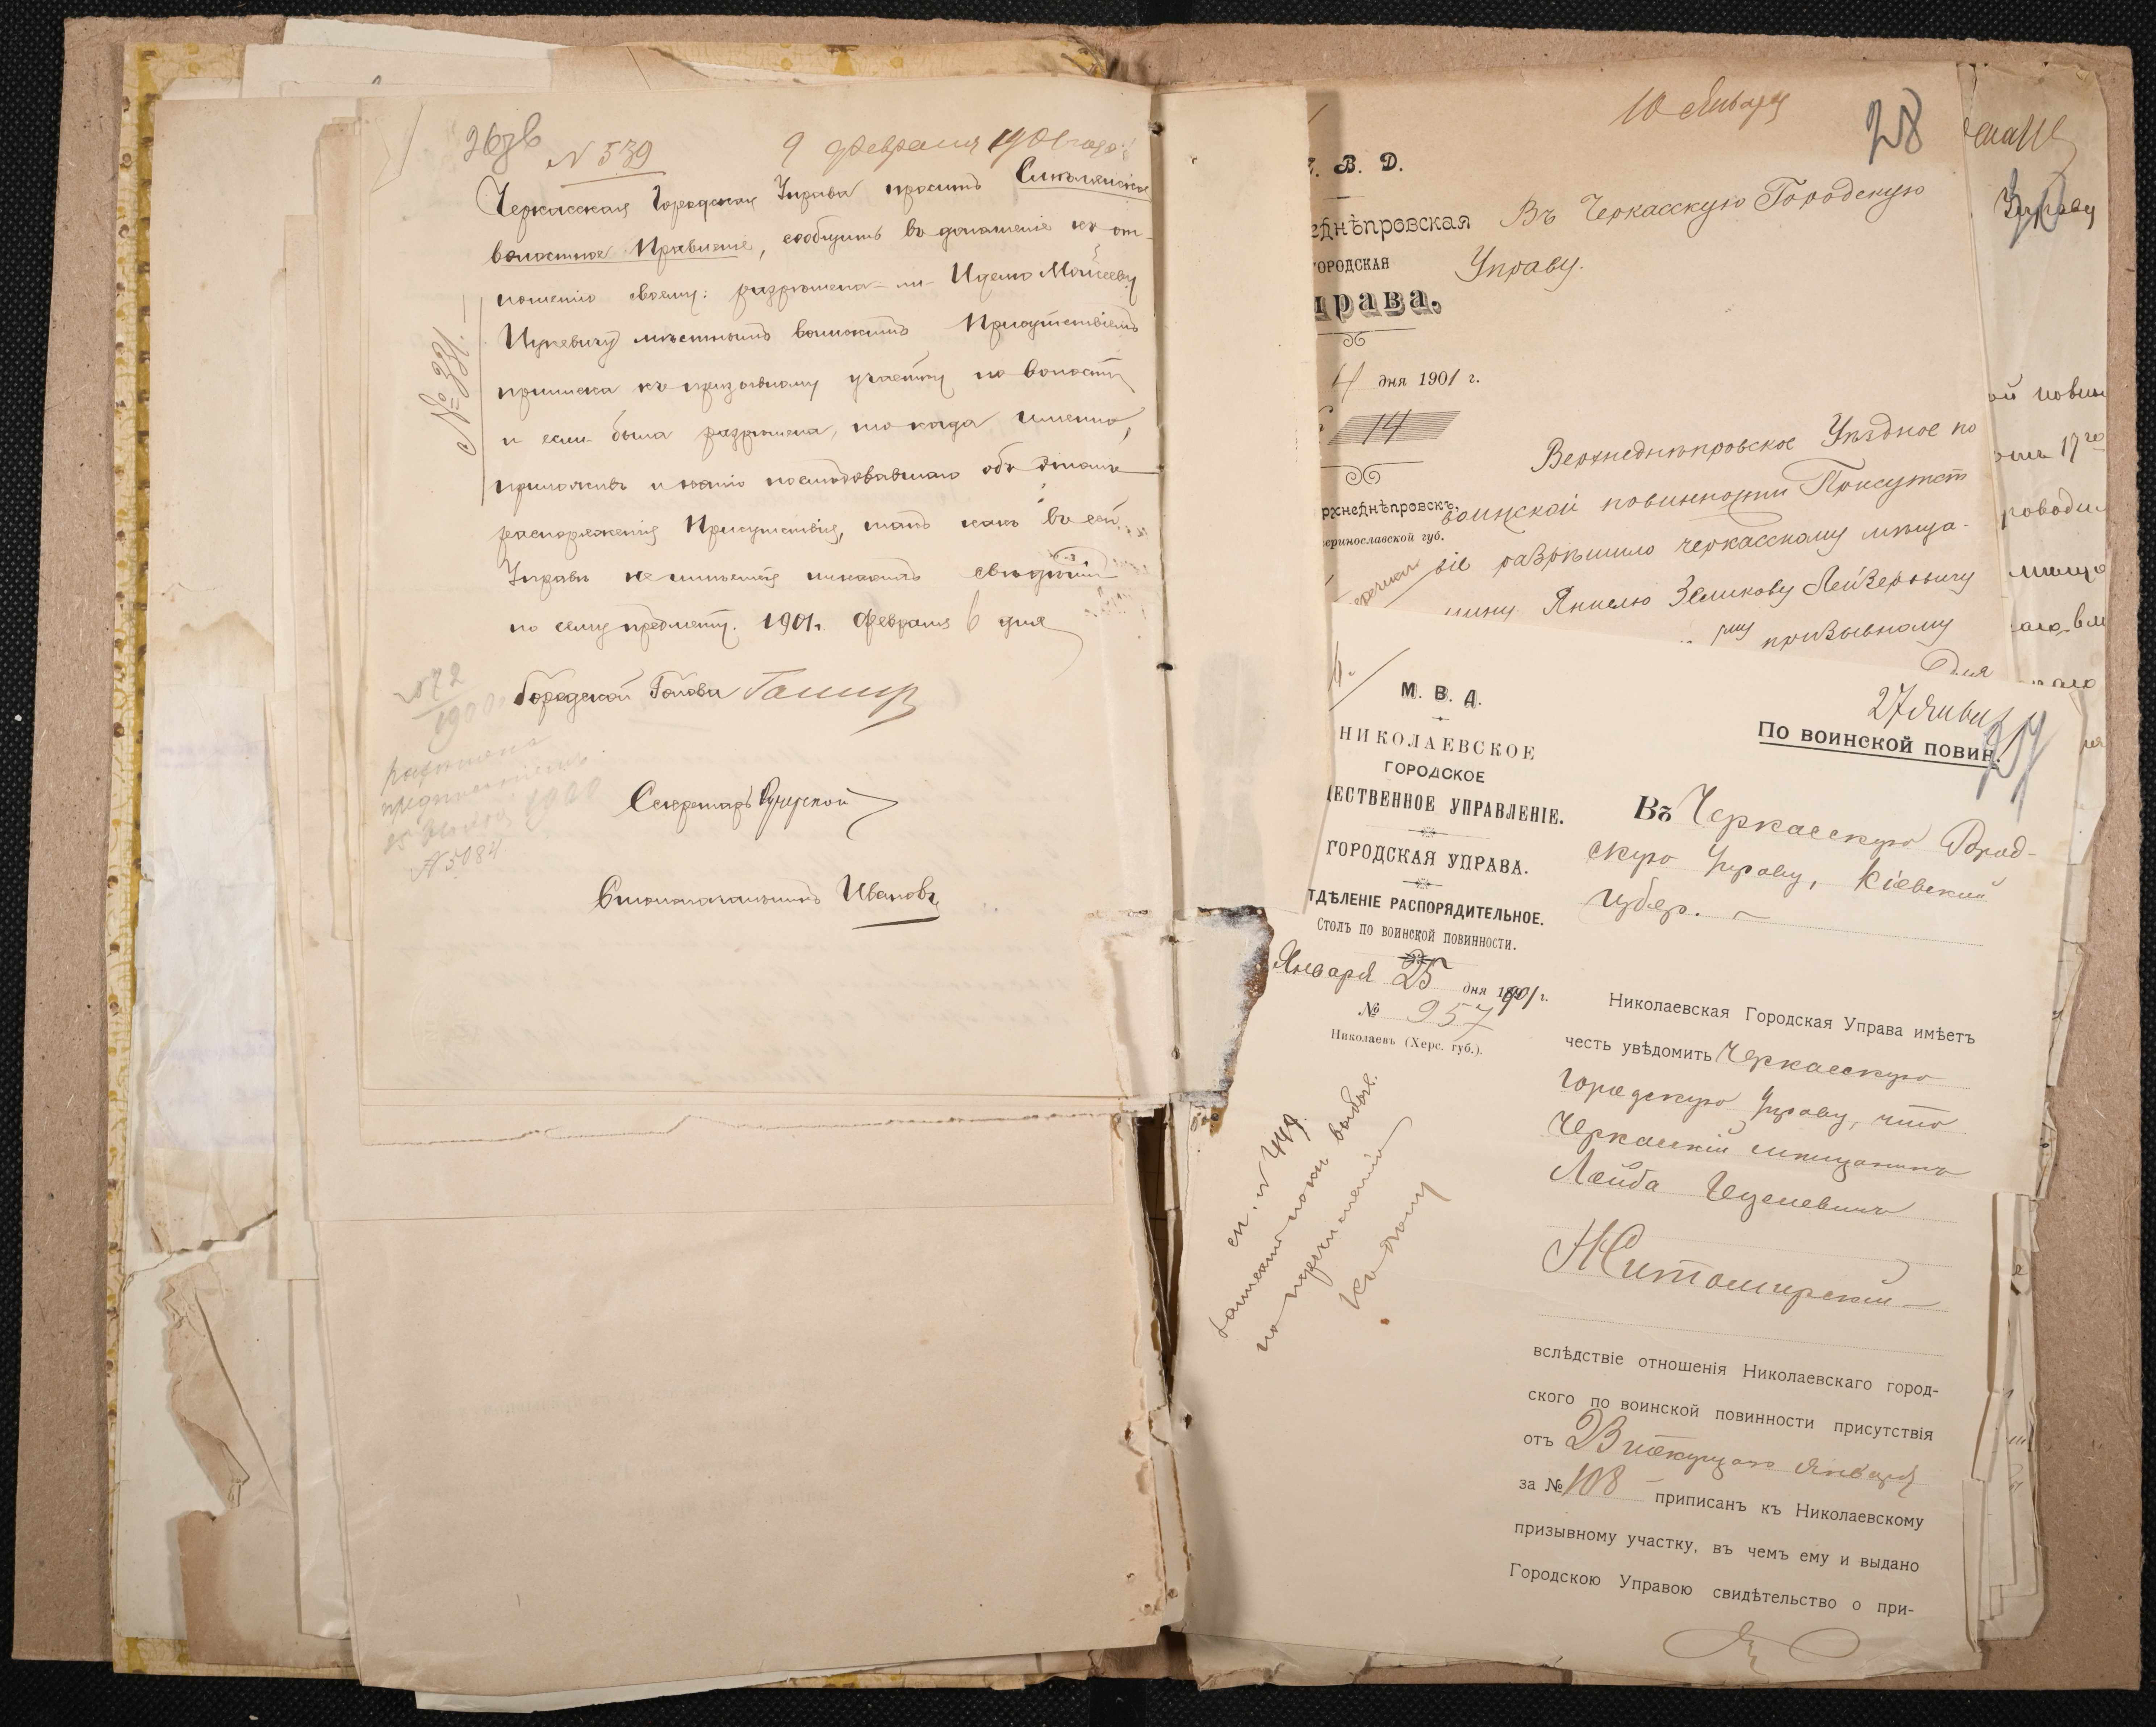 26 об
N 539 9 Февраля 1901 года
Черкасская Городская Управа проситъ Смѣлянское
волостное Правленіе, сообщить въ дополненіе къ от-
ношенію своему: разрѣшена-ли
мѣстнымъ воинскимъ Присутствіемъ
приписка къ призывному участку по волости
и если была разрѣшена, то когда именно,
приложивъ копію послѣдовавшаго объ этомъ
распоряженія Присутствія, такъ какъ въ сей
Управѣ не имѣется никакихъ свѣдѣній
по сему предмету. 1901 г. Февраля 6 дня
№ 331.
Городской Голова
Секретарь
Столоначальникъ Ивановъ
2072
1900
разрѣшена
предписаніемъ
25 1900
N 5084
10 Января
28
В. Д.
еднѣпровская
ОРОДСКАЯ
рава.
4 дня 1901 г.
14
рхнеднѣпровскъ,
еринославской губ.
Въ Черкасскую Городскую
Управу.
Верхнеднѣпровское Уѣздное по
воинской повинности Присутст
віе разрѣшило черкасскому мѣща-
нину Янкелю Зеликову Лейзеровичу
призывному
Управу
ой повин
17го
роводи
мѣща
27 Января
По воинской повин.
М. В. Д.
НИКОЛАЕВСКОЕ
ГОРОДСКОЕ
ЕСТВЕННОЕ УПРАВЛЕНІЕ.
ГОРОДСКАЯ УПРАВА.
ТДѢЛЕНІЕ РАСПОРЯДИТЕЛЬНОЕ.
Столъ по воинской повинности.
Января 25 дня 1901 г.
№ 957
Николаевъ (Херс. губ.).
Въ Черкасскую Город-
скую Управу, Кіевской
губер.
Николаевская Городская Управа имѣетъ
честь увѣдомить Черкасскую
Городскую Управу, что
Черкасскій мѣщанинъ
Лейба Ицелевичъ
Житомирскій
вслѣдствіе отношенія Николаевскаго город-
ского по воинской повинности присутствія
отъ 23 текущаго Января
за № 108 приписанъ къ Николаевскому
призывному участку, въ чемъ ему и выдано
Городскою Управою свидѣтельство о при-